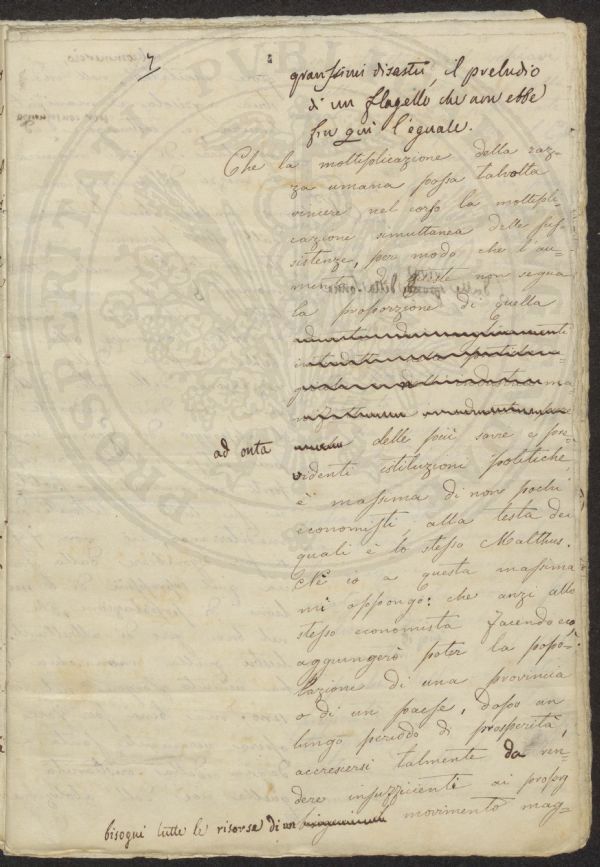 7
granssimi disastri, il preludio
di un flagello che non ebbe
fin qui l'eguale.
Che la moltiplicazione della raz-
za umana possa talvolta
vincere nel corso la moltipli-
cazione simultanea delle sus-
sistenze, per modo che l'au-
mento di queste non segua
la proporzione di quella
ad onta delle più savie e pro-
videnti istituzioni politiche
è massima di non pochi
economisti, alla testa dei
quali è lo stesso Malthus.
Nè io a questa massima
mi oppongo: che anzi allo
stesso economista facendo eco,
aggiungerò poter la popo-
lazione di una provincia
o di un paese, dopo un
lungo periodo di prosperità,
accrescersi talmente da ren-
dere insufficienti ai propry
bisogni tutte le risorse di un movimento mag-